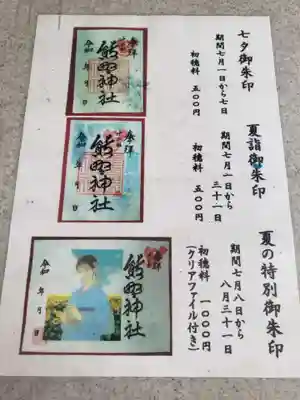 七夕御朱印
期間七月一日から七日
初穂料 五〇〇円
夏詣御朱印
期間七月一日から
三十一日
初穂料 五〇〇円
夏の特別御朱印
期間七月八日から
八月三十一日
初穂料 一〇〇〇円
(クリアファイル付き)
奉拝
熊野神社
令和 年 月 日
奉拝
熊野神社
令和 年 月 日
奉拝
熊野神社
令和 年 月 日